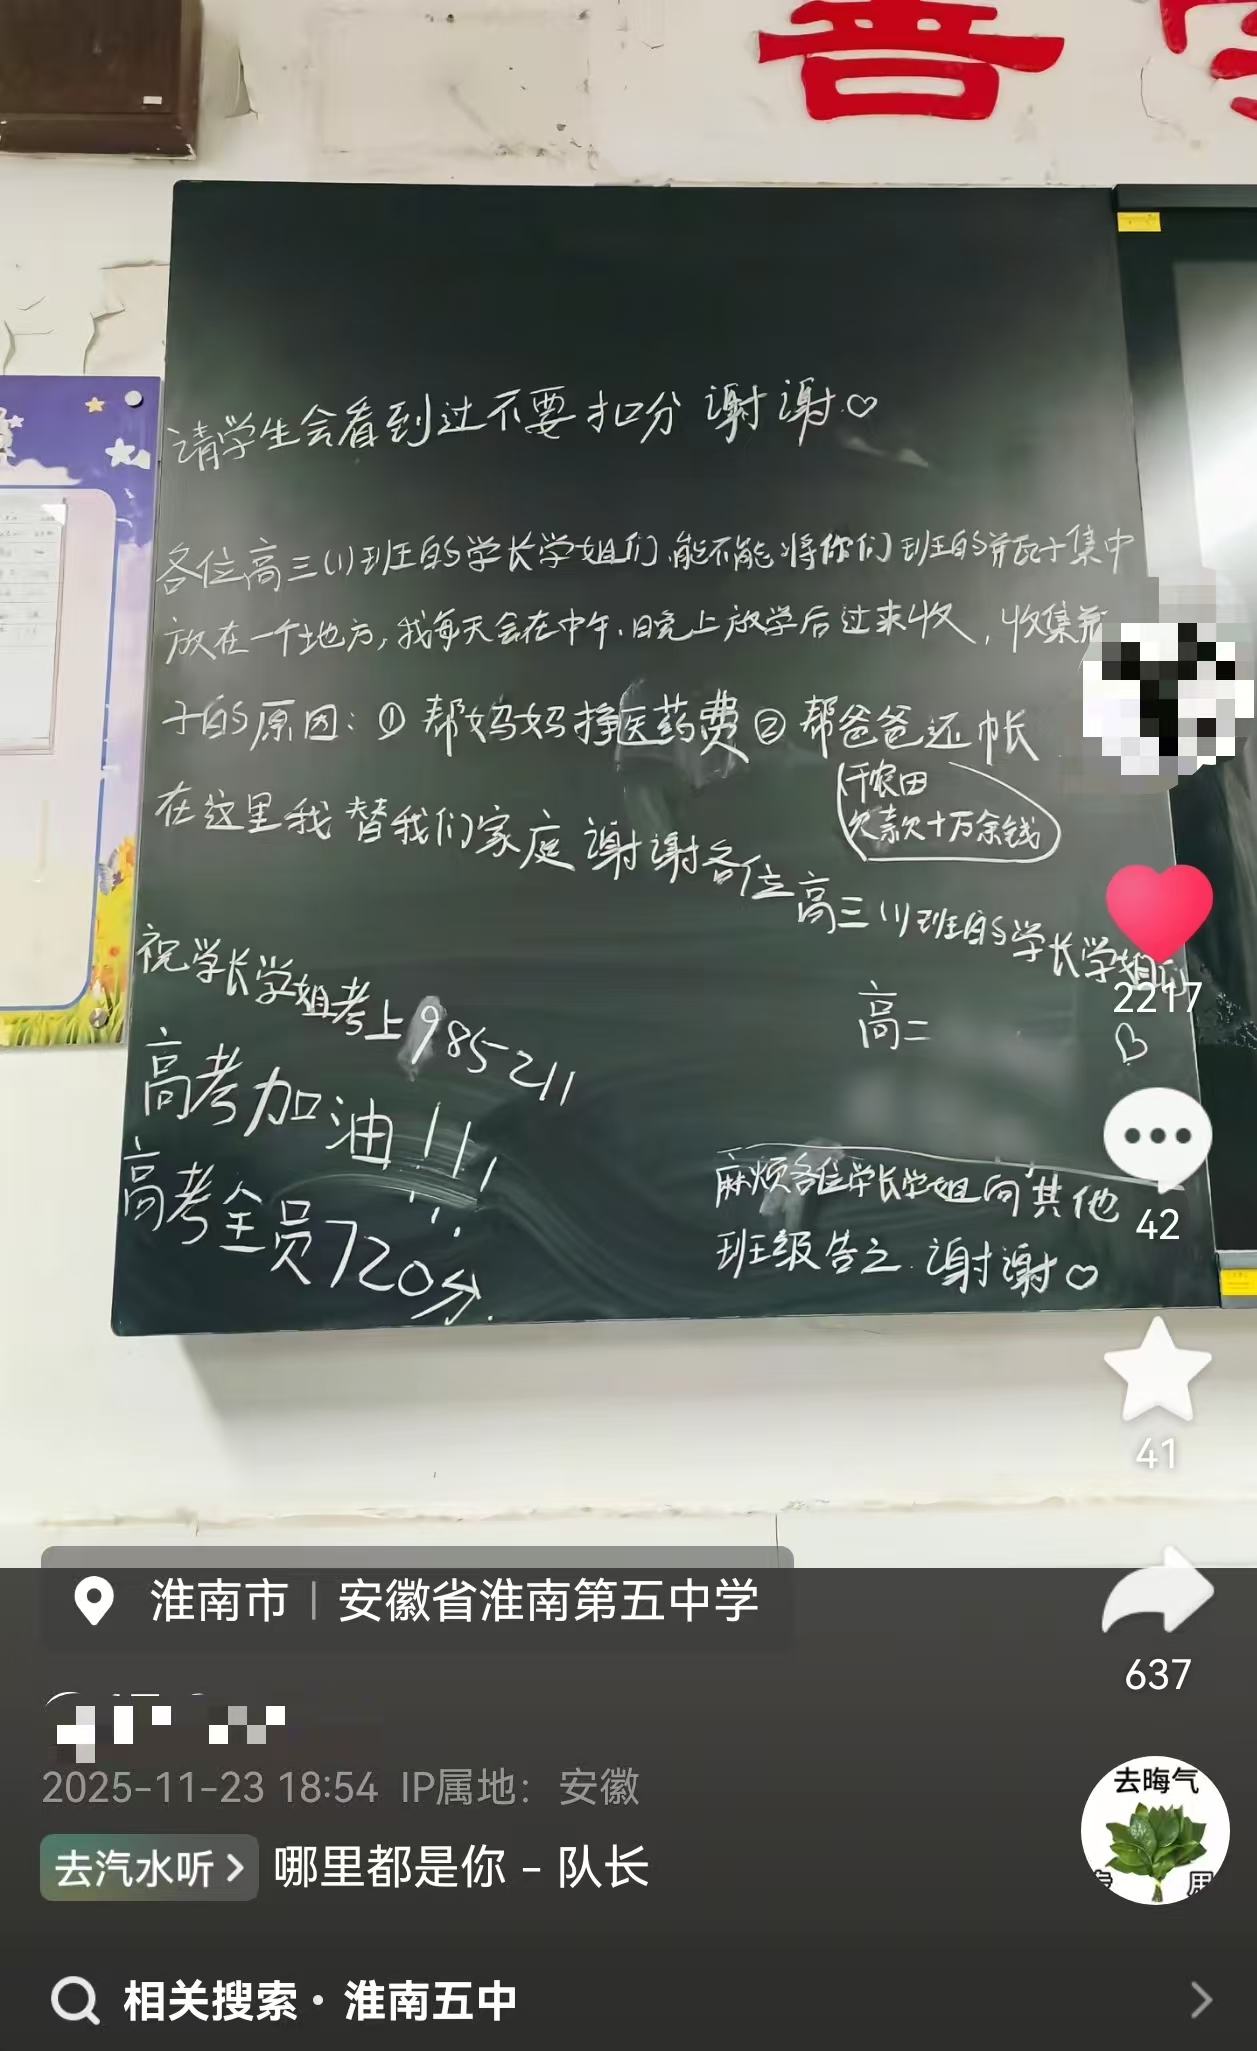 请学生会看到过不要扣分 谢谢♡
各位高三(1)班的学长学姐们,能不能将你们班的瓶子集中
放在一个地方,我每天会在中午、晚上放学后过来收,收集瓶
子的原因:① 帮妈妈挣医药费 ② 帮爸爸还帐
干农田
欠款十万余钱
在这里我替我们家庭谢谢各位高三(1)班的学长学姐们
高二
♡
祝学长学姐考上985 211
高考加油!!!
高考全员720分.
麻烦各位学长学姐向其他
班级告之.谢谢♡
2217
42
41
637
淮南市 | 安徽省淮南第五中学
2025-11-23 18:54 IP属地:安徽
去汽水听 > 哪里都是你 - 队长
去晦气
相关搜索 · 淮南五中